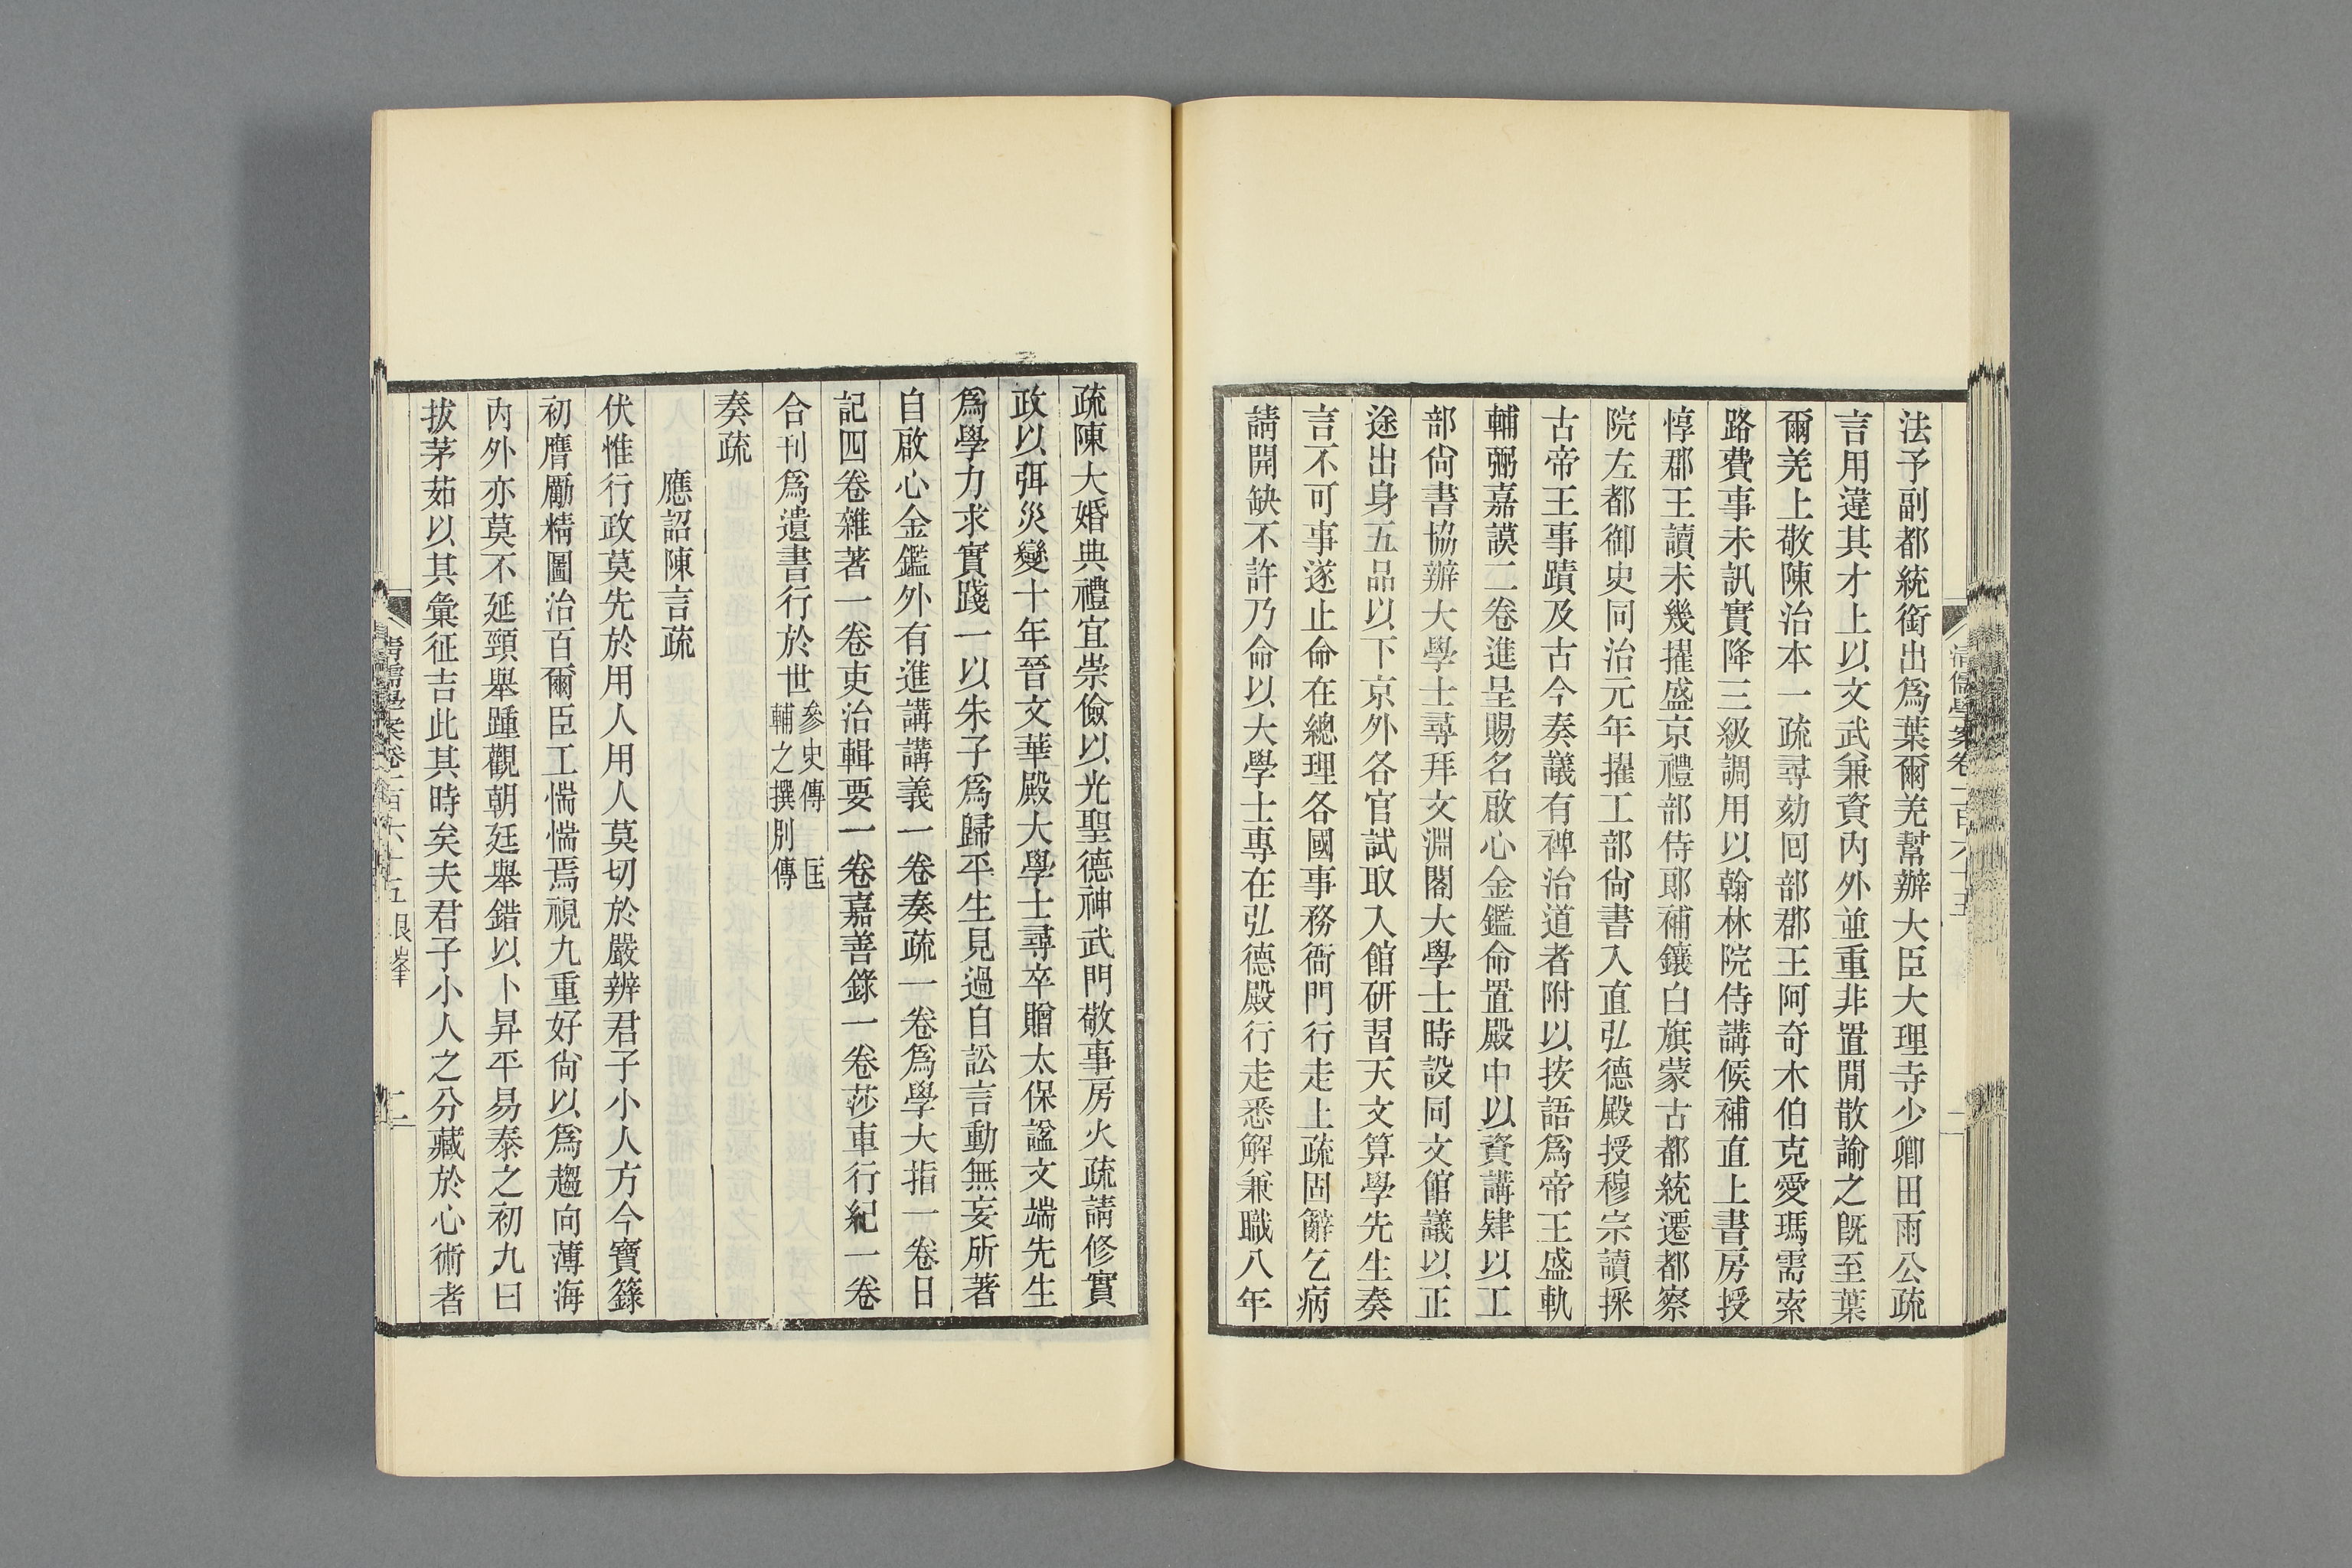 法予副都統銜出爲葉爾羌幫辦大臣大理寺少卿田雨公疏
言用違其才上以文武兼資內外並重非置閒散諭之旣至葉
爾羌上敬陳治本一疏尋劾回部郡王阿奇木伯克愛瑪需索
路費事未訊實降三級調用以翰林院侍講候補直上書房授
惇郡王讀未幾擢盛京禮部侍郞補鑲白旗蒙古都統遷都察
院左都御史同治元年擢工部尙書入直弘德殿授穆宗讀採
古帝王事蹟及古今奏議有裨治道者附以按語爲帝王盛軌
輔弼嘉謨二卷進呈賜名啟心金鑑命置殿中以資講肄以工
部尙書協辦大學士尋拜文淵閣大學士時設同文館議以正
途出身五品以下京外各官試取入館硏習天文算學先生奏
言不可事遂止命在總理各國事務衙門行走上疏固辭乞病
請開缺不許乃命以大學士專在弘德殿行走悉解兼職八年
疏陳大婚典禮宜崇儉以光聖德神武門敬事房火疏請修實
政以弭災變十年晉文華殿大學士尋卒贈太保諡文端先生
爲學力求實踐一以朱子爲歸平生見過自訟言動無妄所著
自啟心金鑑外有進講講義一卷奏疏一卷爲學大指一卷日
記四卷雜著一卷吏治輯要一卷嘉善錄一卷莎車行紀一卷
合刊爲遺書行於世參史傳　匡輔之撰別傳
奏疏
應詔陳言疏
伏惟行政莫先於用人用人莫切於嚴辨君子小人方今寶籙
初膺勵精圖治百爾臣工惴惴焉視九重好尙以爲趨向薄海
內外亦莫不延頸舉踵觀朝廷舉錯以卜昇平易泰之初九曰
拔茅茹以其彙征吉此其時矣夫君子小人之分藏於心術者
清儒學案卷一百六十五　艮峯　二